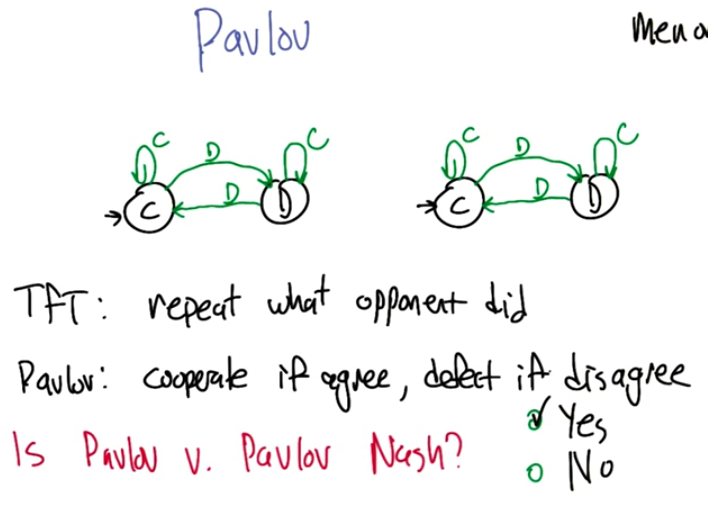 Pavlov
C D C
C D D
C D C
C D D
TFT: repeat what opponent did
Pavlov: cooperate if agree, defect if disagree
Is Pavlov v. Pavlov Nash?
Yes
No